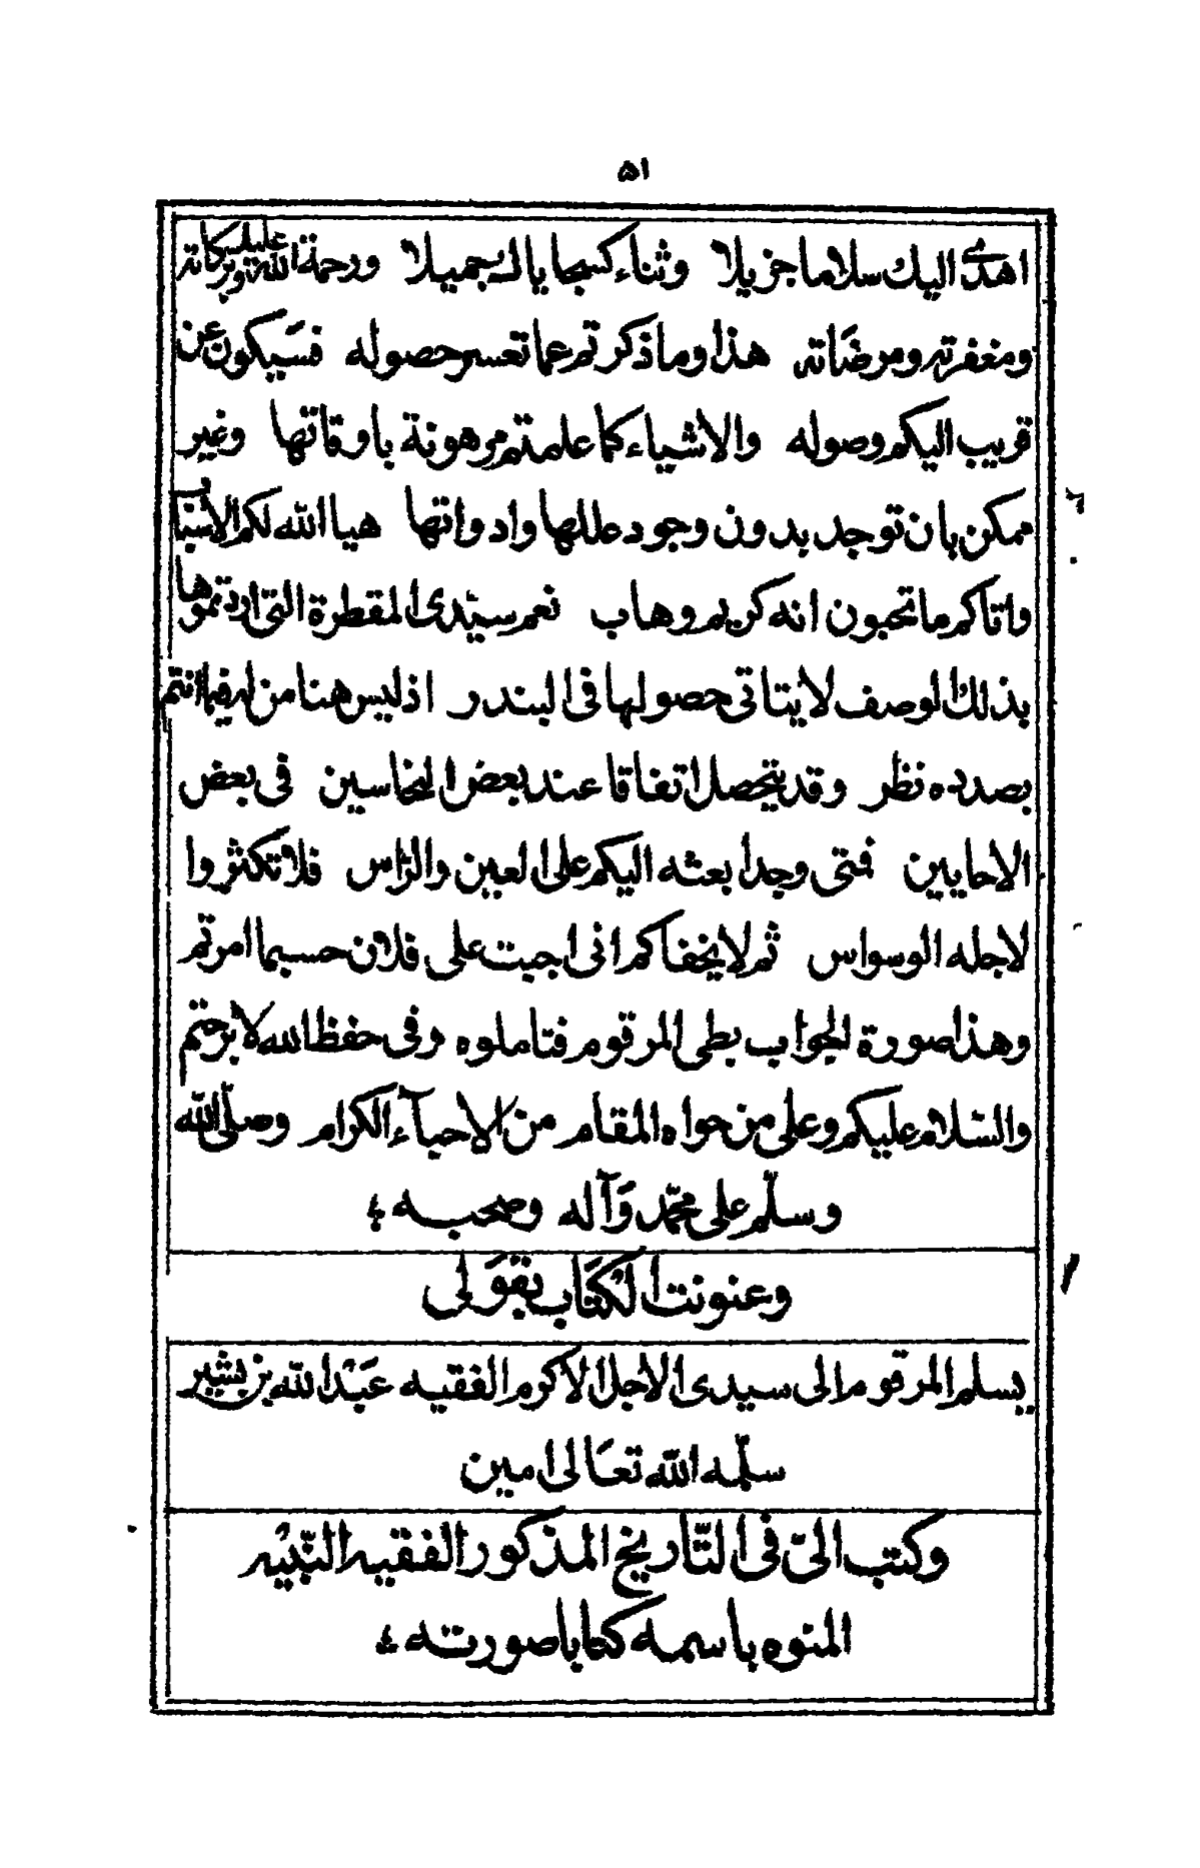 ٥١
اهدى اليك سلاما جزيلا وثناء كسجاياك جميلا ورحمة الله عليك وبركاته
ومغفرته ومرضاته هذا وما ذكرتم عما تعسر حصوله فسيكون عن
قريب اليكم وصوله والاشياء كما علمتم مرهونة باوقاتها وغير
ممكن بان توجد بدون وجود عللها وادواتها هيا الله لكم الاسباب
واتاكم ما تحبون انه كريم وهاب نعم سيّدى المقطرة التى اردتموها
بذلك الوصف لا يتاتى حصولها فى البندر اذ ليس هنا من له فيما انتم
بصدده نظر وقد يتحصل اتفاقا عند بعض النخاسين فى بعض
الاحايين فمتى وجد ابعثه اليكم على العين والرّاس فلا تكثروا
لاجله الوسواس ثم لا يخفاكم انى اجبت على فلان حسبما امرتم
وهذا صورة الجواب بطى المرقوم فتاملوه وفى حفظ الله لا برحتم
والسّلام عليكم وعلى من حواه المقام من الاحبآء الكرام وصلّى الله
وسلّم على محمّد وَآله وصحبه
وعنونت الكتَاب بقَولى
يسلم المرقوم الى سيدى الاجل الاكرم الفقيه عَبْد الله بن بشير
سلّمه الله تعَالى امين
وكتب الىّ فى التّاريخ المذكور الفقيه النّبيْه
المنوه باسمه كتابا صورته